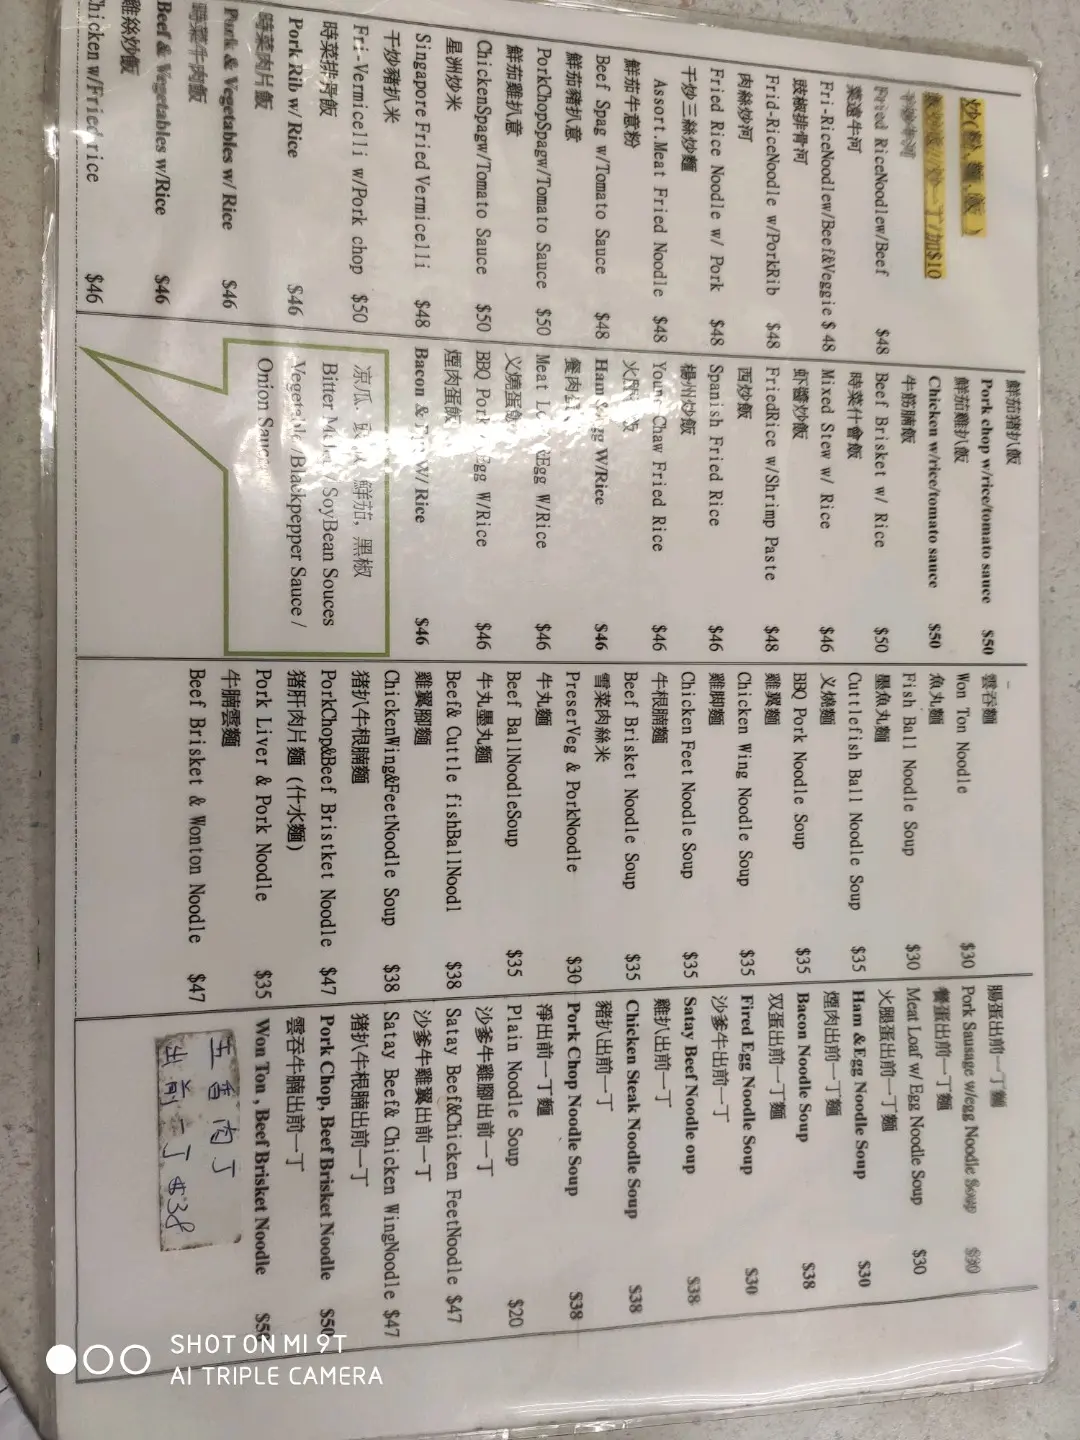 炒(粉,麵,飯 )
/加$10
Fried RiceNoodlew/Beef $48
菜遠牛河
Fri-RiceNoodlew/Beef&Veggie $ 48
豉椒排骨河
Frid-RiceNoodle w/PorkRib $48
肉絲炒河
Fried Rice Noodle w/ Pork $48
干炒三絲炒麵
Assort.Meat Fried Noodle $48
鮮茄牛意粉
Beef Spag w/Tomato Sauce $48
鮮茄豬扒意
PorkChopSpagw/Tomato Sauce $50
鮮茄雞扒意
ChickenSpagw/Tomato Sauce $50
星洲炒米
Singapore Fried Vermicelli $48
干炒豬扒米
Fri-Vermicelli w/Pork chop $50
時菜排骨飯
Pork Rib w/ Rice $46
時菜肉片飯
Pork & Vegetables w/ Rice $46
時菜牛肉飯
Beef & Vegetables w/Rice $46
雞絲炒飯
Chicken w/Fried rice $46
鮮茄豬扒飯
Pork chop w/rice/tomato sauce $50
鮮茄雞扒飯
Chicken w/rice/tomato sauce $50
牛筋腩飯
Beef Brisket w/ Rice $50
時菜什會飯
Mixed Stew w/ Rice $46
蝦醬炒飯
FriedRice w/Shrimp Paste $48
西炒飯
Spanish Fried Rice $46
揚州炒飯
Young Chaw Fried Rice $46
Ham &Egg W/Rice $46
餐肉
Meat Egg W/Rice $46
义燒蛋飯
BBQ Pork/Egg W/Rice $46
煙肉蛋飯
Bacon & W/ Rice $46
凉瓜, 鮮茄, 黑椒
Bitter SoyBean Souces
Vegetable /Blackpepper Sauce /
Onion Sauce
雲吞麵
Won Ton Noodle $30
魚丸麵
Fish Ball Noodle Soup $30
墨魚丸麵
Cuttlefish Ball Noodle Soup $35
义燒麵
BBQ Pork Noodle Soup $35
雞翼麵
Chicken Wing Noodle Soup $35
雞脚麵
Chicken Feet Noodle Soup $35
牛根腩麵
Beef Brisket Noodle Soup $35
雪菜肉絲米
PreserVeg & PorkNoodle $30
牛丸麵
Beef BallNoodleSoup $35
牛丸墨丸麵
Beef& Cuttle fishBallNoodl $38
雞翼腳麵
ChickenWing&FeetNoodle Soup $38
猪扒牛根腩麵
PorkChop&Beef Bristket Noodle $47
猪肝肉片麵 (什水麵)
Pork Liver & Pork Noodle $35
牛腩雲麵
Beef Brisket & Wonton Noodle $47
腸蛋出前一丁麵
Pork Sausage w/egg Noodle Soup $30
餐蛋出前一丁麵
Meat Loaf w/ Egg Noodle Soup $30
火腿蛋出前一丁麵
Ham &Egg Noodle Soup $30
煙肉出前一丁麵
Bacon Noodle Soup $38
双蛋出前一丁麵
Fired Egg Noodle Soup $30
沙爹牛出前一丁
Satay Beef Noodle oup $38
雞扒出前一丁
Chicken Steak Noodle Soup $38
豬扒出前一丁麵
Pork Chop Noodle Soup $38
淨出前一丁麵
Plain Noodle Soup $20
沙爹牛雞腳出前一丁
Satay Beef&Chicken FeetNoodle $47
沙爹牛雞翼出前一丁
Satay Beef& Chicken WingNoodle $47
猪扒牛根腩出前一丁
Pork Chop, Beef Brisket Noodle $50
雲吞牛腩出前一丁
Won Ton , Beef Brisket Noodle
五香肉丁
出前一丁 $38
SHOT ON MI 9T
AI TRIPLE CAMERA